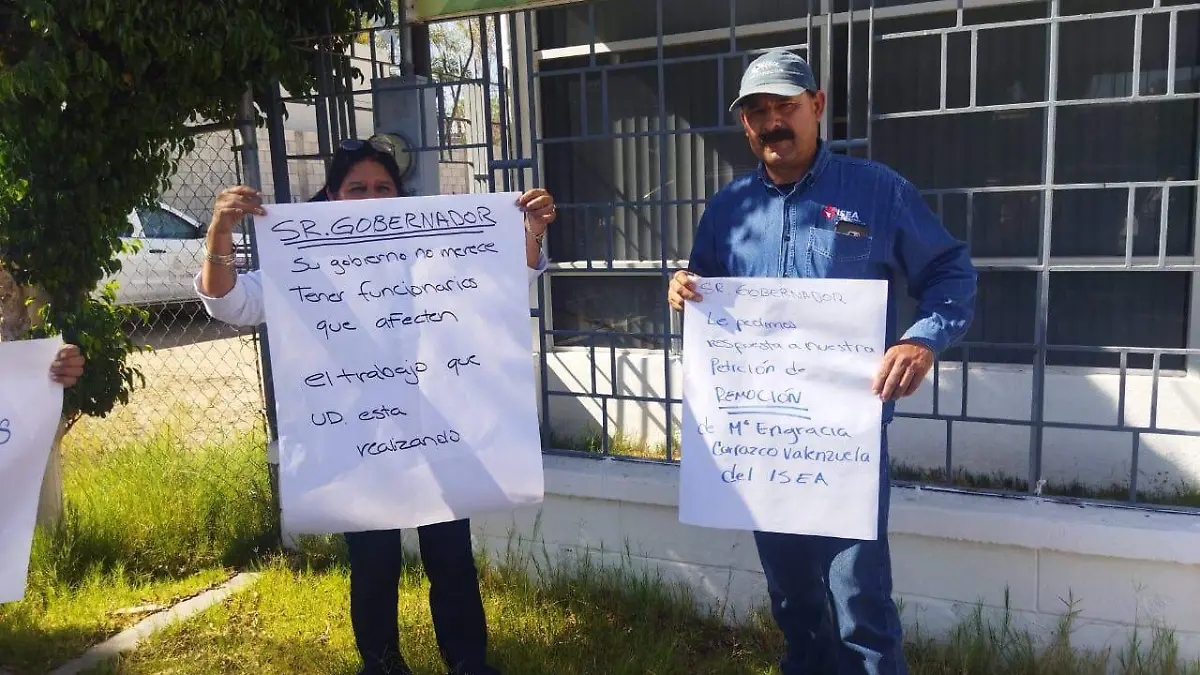 SR. GOBERNADOR
Su gobierno no merece
Tener funcionarios
que afecten
el trabajo que
UD. esta
realzando
SR. GOBERNADOR
Le pedimos
respuesta a nuestra
Petición de
REMOCIÓN
de Mª Engracia
Carrazco Valenzuela
del ISEA
ISEA
S